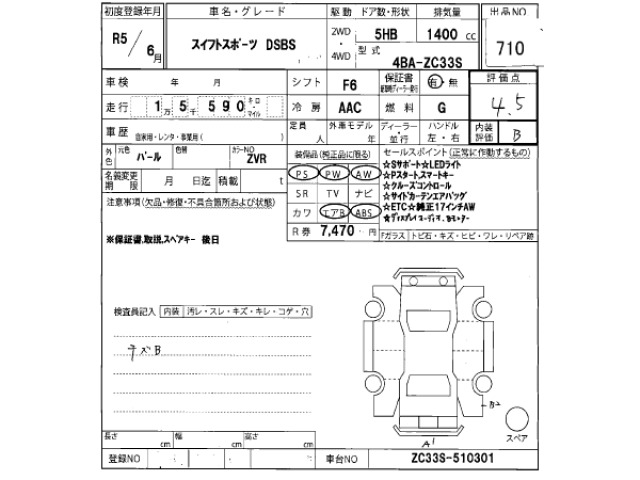 初度登録年月 車名・グレード 駆動 ドア数・形状 排気量 出品NO
R5 6月 スイフトスポーツ DSBS 2WD ・ 4WD 5HB 1400 cc 710
型式 4BA-ZC33S
車検 年 月 シフト F6 保証書 有・無 評価点
走行 1万5千590 キロ マイル 冷房 AAC 燃料 G 4.5
車歴 自家用・レンタ・事業用( ) 定員 人 外車モデル 年 ディーラー・並行 ハンドル 左・右 内装評価 B
外色 元色 パール 色替 カラーNO ZVR 装備品(純正品に限る) セールスポイント(正常に作動するもの)
名義変更期限 月 日迄 積載 t PS PW AW ☆Sサポート☆LEDライト
☆Pスタートスマートキー
注意事項(欠品・修復・不具合箇所および状態) SR TV ナビ ☆クルーズコントロール
☆サイドカーテンエアバッグ
カワ エアB ABS ☆ETC☆純正17インチAW
R券 7,470 円
※保証書,取説,スペアキー 後日 Fガラス トビ石・キズ・ヒビ・ワレ・リペア跡
検査員記入 内装 汚レ・スレ・キズ・キレ・コゲ・穴
チズB
B2
A1
スペア
長さ cm 幅 cm 高さ cm
登録NO 車台NO ZC33S-510301